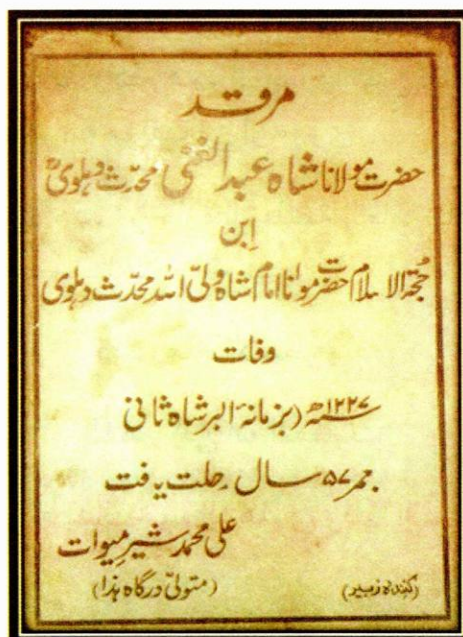 مرقد
حضرت مولانا شاہ عبدالغنی محدّث دہلویؒ
اِبن
حُجّۃ الاسلام حضرت مولٰنا امام شاہ ولیّ اللہ محدّث دہلوی
وفات
۱۲۲۷ھ (بزمانۂ اکبر شاہ ثانی
بعمر ۵۷ سال رحلت یافت
علی محمد شیرِ میوات
(متولّی درگاہ ہذا)
(کنندہ زبیر)